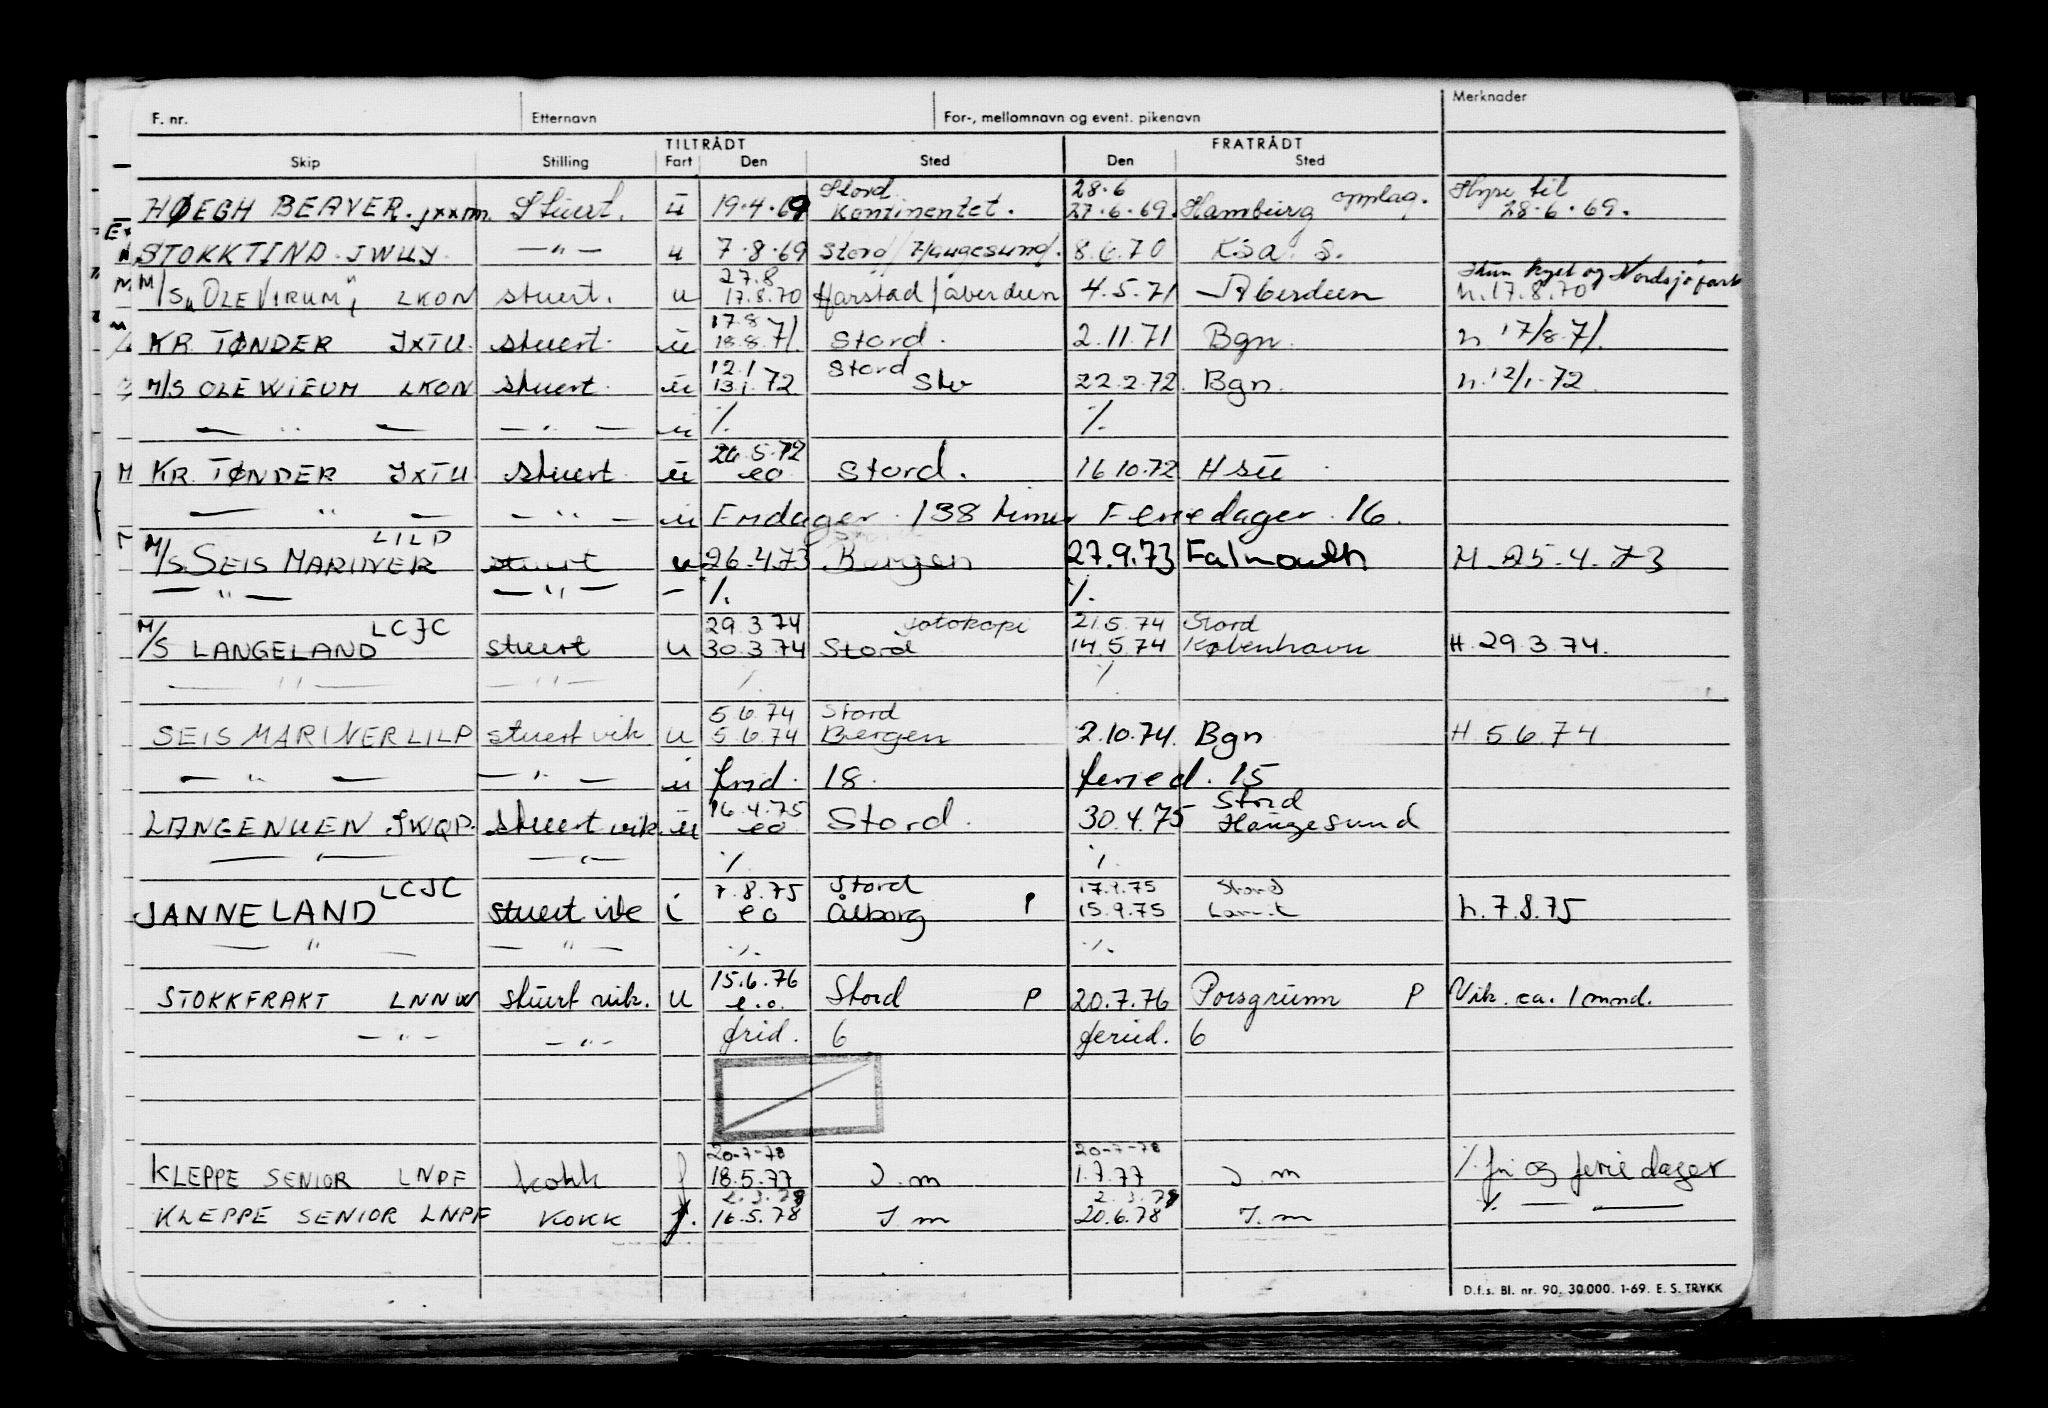 F. nr. Etternavn For-, mellomnavn og event. pikenavn Merknader
TILTRÅDT FRATRÅDT
Skip Stilling Fart Den Sted Den Sted
Stord 28.6 Hyre til
HØEGH BEAVER. jxxm. Stuert. u 19.4.69 Kontinentet. 27.6.69. Hamburg opplag. 28.6.69.
STOKKTIND. JWUY. —"— u 7.8.69 Stord/Haugesund. 8.6.70 Ksa. S.
27.8 kyst og Nordsjøfart
M/S "OLE VIRUM", LKON stuert. u 17.8.70 Harstad/Aberdeen 4.5.71 Aberdeen h.17.8.70
17.8
KR. TØNDER JXTU. stuert. u 18.8.71. Stord. 2.11.71 Bgn. h. 17/8.71.
12.1 Stord
M/S OLE WIEUM LKON stuert. u 13.1.72. Stv 22.2.72. Bgn. h. 12/1.72.
— " — — " — u ./. ./.
26.5.72
KR. TØNDER JXTU stuert. u eo Stord. 16.10.72 Hsu
— " — — " — u Fridager. 138 timer Feriedager. 16.
LILP Stord
M/S. SEIS MARINER stuert u 26.4.73 Bergen 27.9.73 Falmouth H. 25.4.73
— " — — " — – ./. ./.
LCJC 29.3.74 fotokopi 21.5.74 Stord
M/S LANGELAND stuert u 30.3.74 Stord 14.5.74 København H. 29.3.74.
— " — — " — ./. ./.
5.6.74 Stord
SEIS MARINER LILP stuert vik u 5.6.74 Bergen 2.10.74. Bgn H 5.6.74
— " — — " — u frid. 18. feried. 15
16.4.75 Stord
LANGENUEN JWQP. stuert vik. u eo Stord. 30.4.75 Haugesund
— " — — " — ./. ./.
LCJC 7.8.75 Stord 17.9.75 Stord
JANNELAND stuert vik i eo Ålborg P 15.9.75 h. 7.8.75
— " — — " — ./. ./.
15.6.76
STOKKFRAKT LNNW stuert vik. u e.o. Stord P 20.7.76 Porsgrunn P Vik. ca. 1 mnd.
— " — — " — frid. 6 feried. 6
20-7-78 20-7-78
KLEPPE SENIOR LNPF kokk f 18.5.77 J.m 1.7.77 J.m ./. fri og feriedager
2.3.78 2.3.78
KLEPPE SENIOR LNPF KOKK f. 16.5.78 J.m 20.6.78 J.m ./. — —
D.f.s. Bl. nr. 90. 30.000. 1-69. E. S. TRYKK